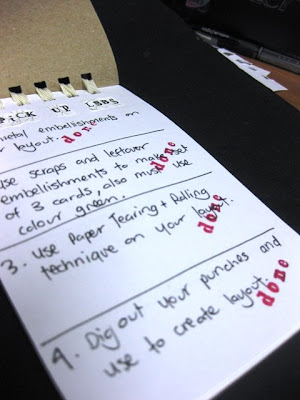 PICK UP LSBS
metal embellishments on
layout. done
use scraps and leftover
embellishments to make set
of 3 cards, also must use
colour green. done
3. Use Paper Tearing + Rolling
technique on your layout.
done
4. Dig out your punches and
use to create layout. done